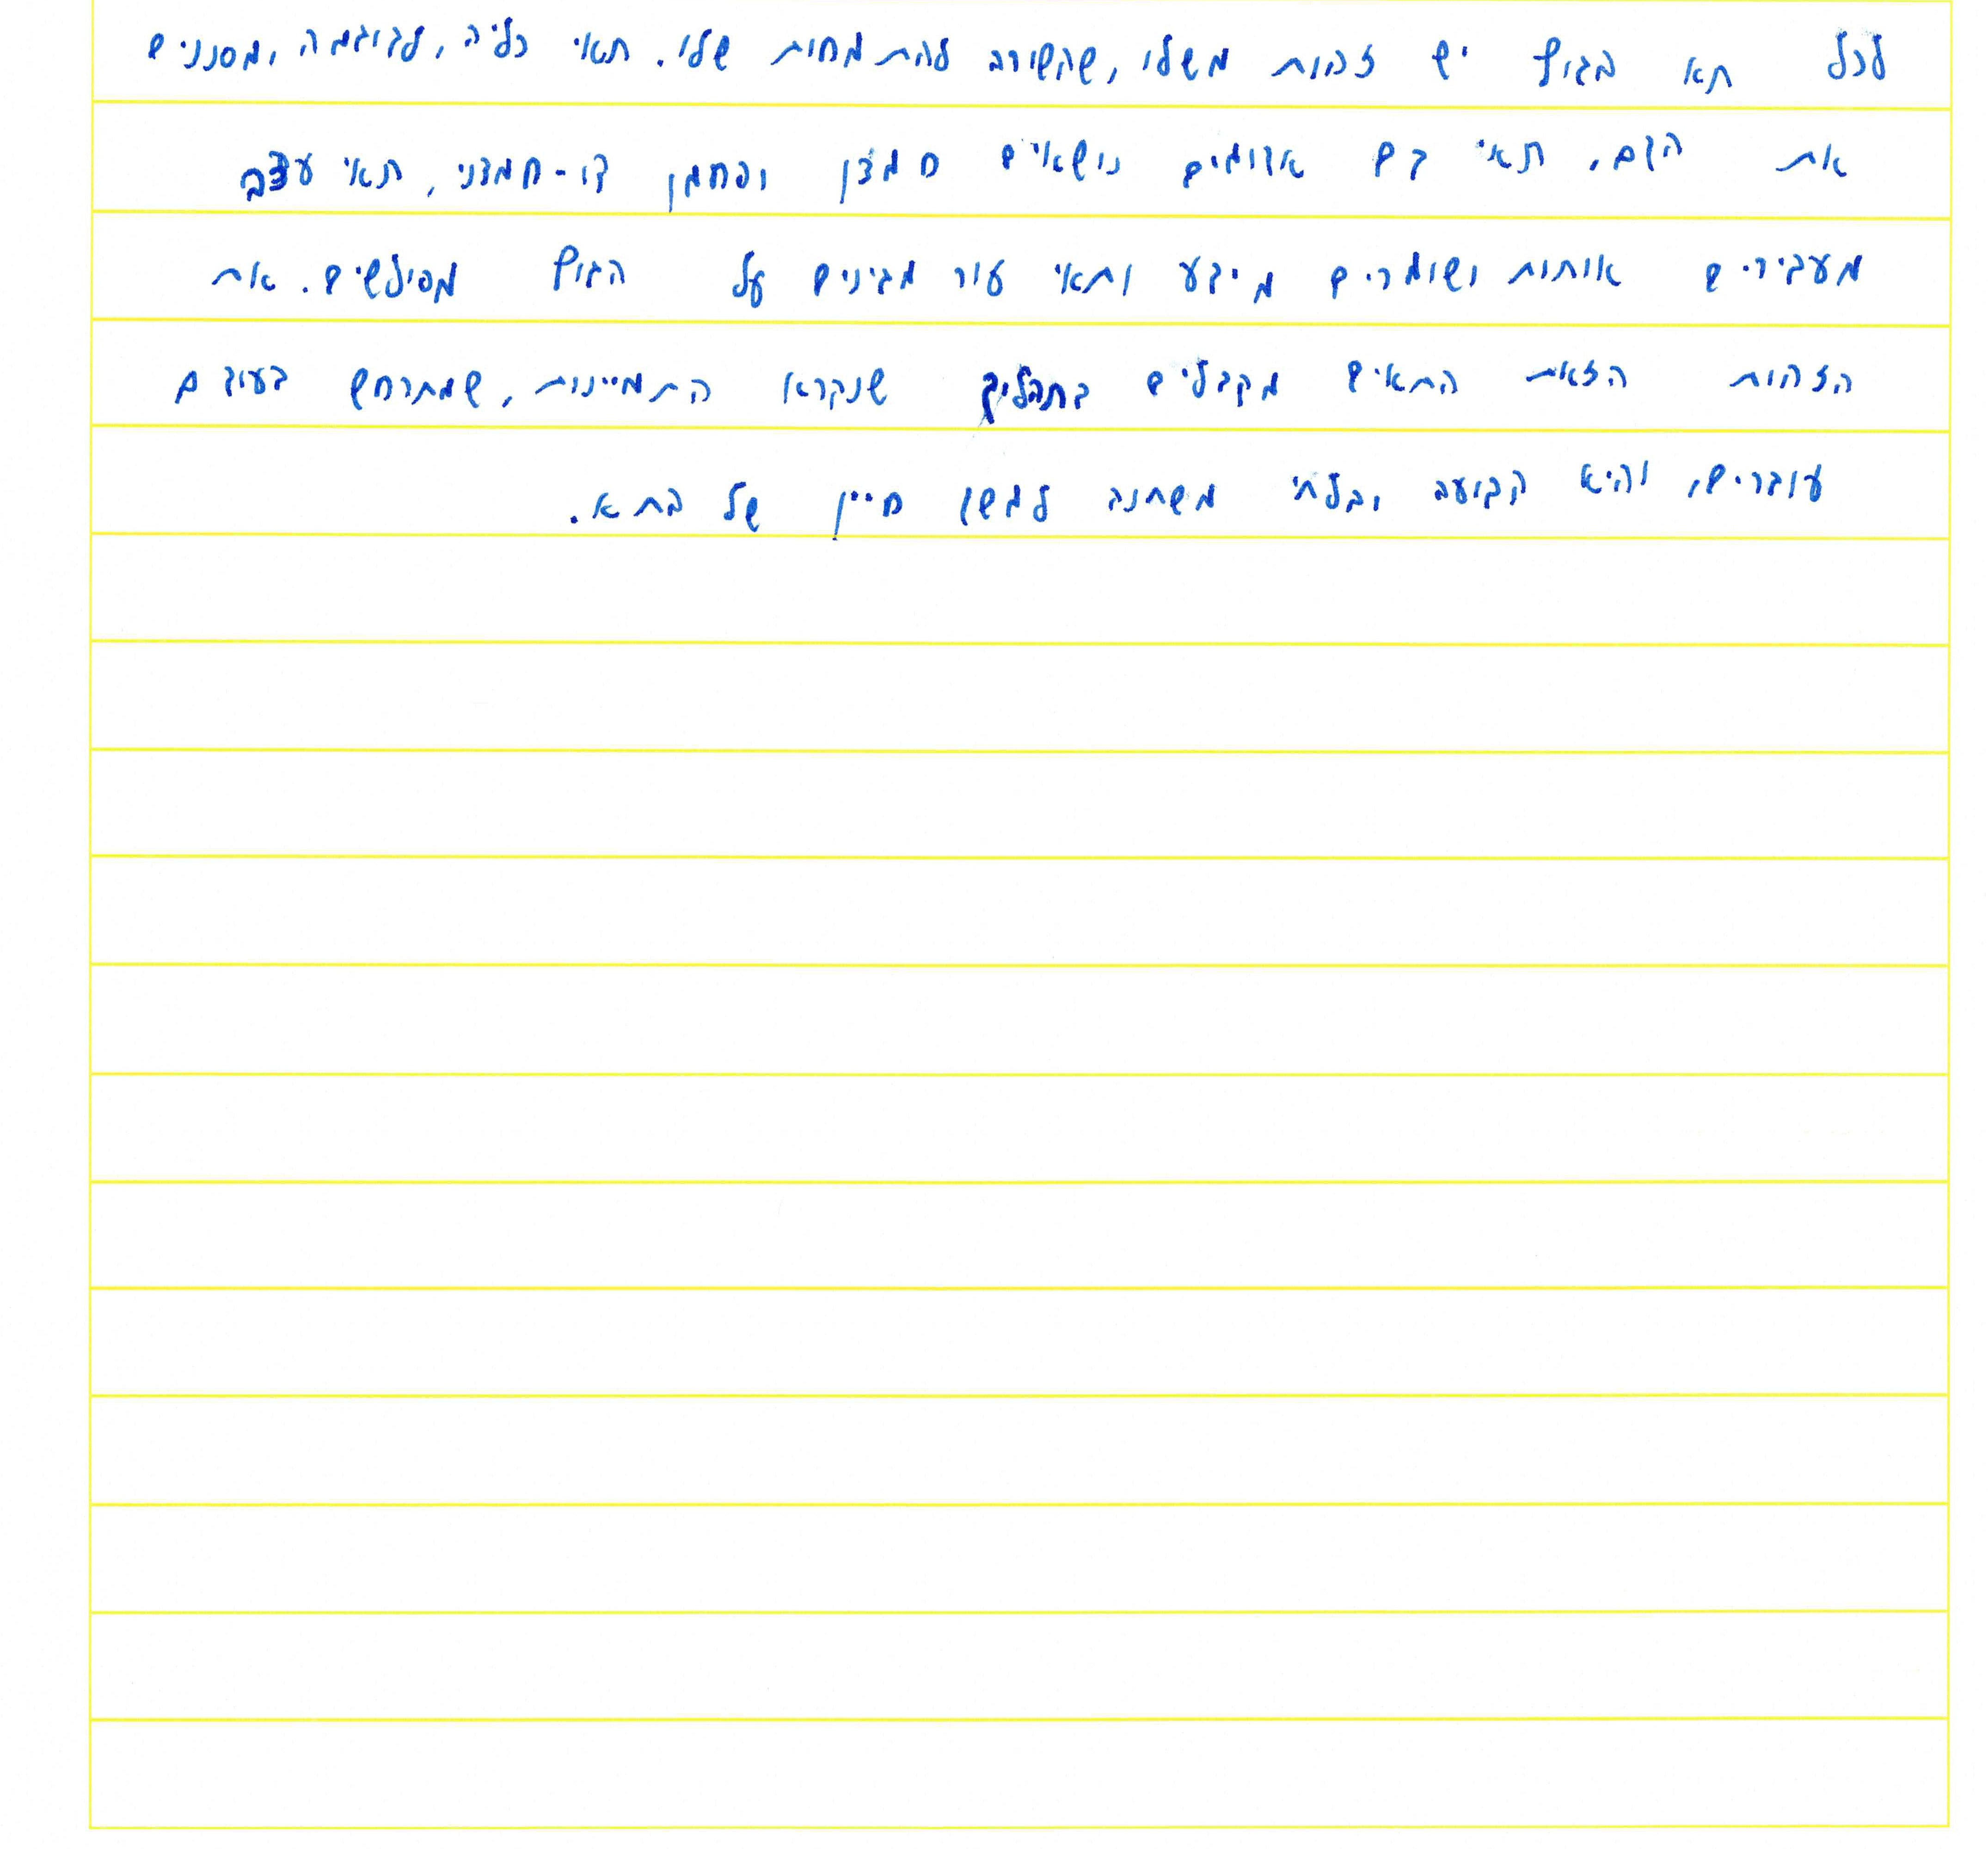 לכל תא בגוף יש זהות משלו, שקשורה להתמחות שלו. תאי כליה, לדוגמה, מסננים
את הדם, תאי דם אדומים נושאים חמצן ופחמן דו-חמצני, תאי עצב
מעבירים אותות ושומרים מידע ותאי עור מגינים על הגוף מפולשים. את
הזהות הזאת התאים מקבלים בתהליך שנקרא התמיינות, שמתרחש בעודם
עוברים, והיא קבועה ובלתי משתנה למשך חייו של התא.